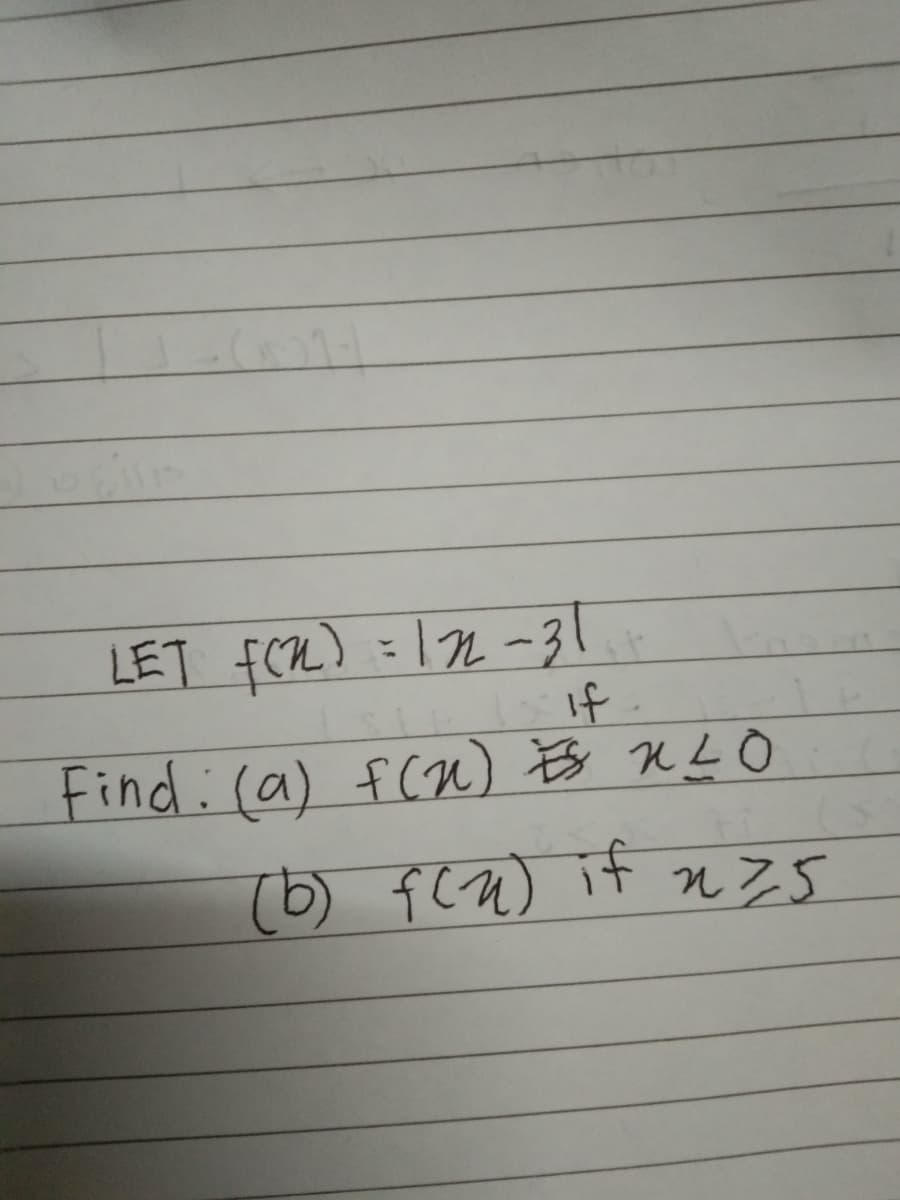 LET f(x) = |x - 3|
if
Find: (a) f(x) x ≤ 0
(b) f(x) if x ≥ 5